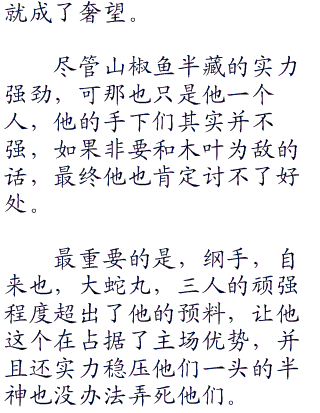 就成了奢望。
尽管山椒鱼半藏的实力
强劲，可那也只是他一个
人，他的手下们其实并不
强，如果非要和木叶为敌的
话，最终他也肯定讨不了好
处。
最重要的是，纲手，自
来也，大蛇丸，三人的顽强
程度超出了他的预料，让他
这个在占据了主场优势，并
且还实力稳压他们一头的半
神也没办法弄死他们。